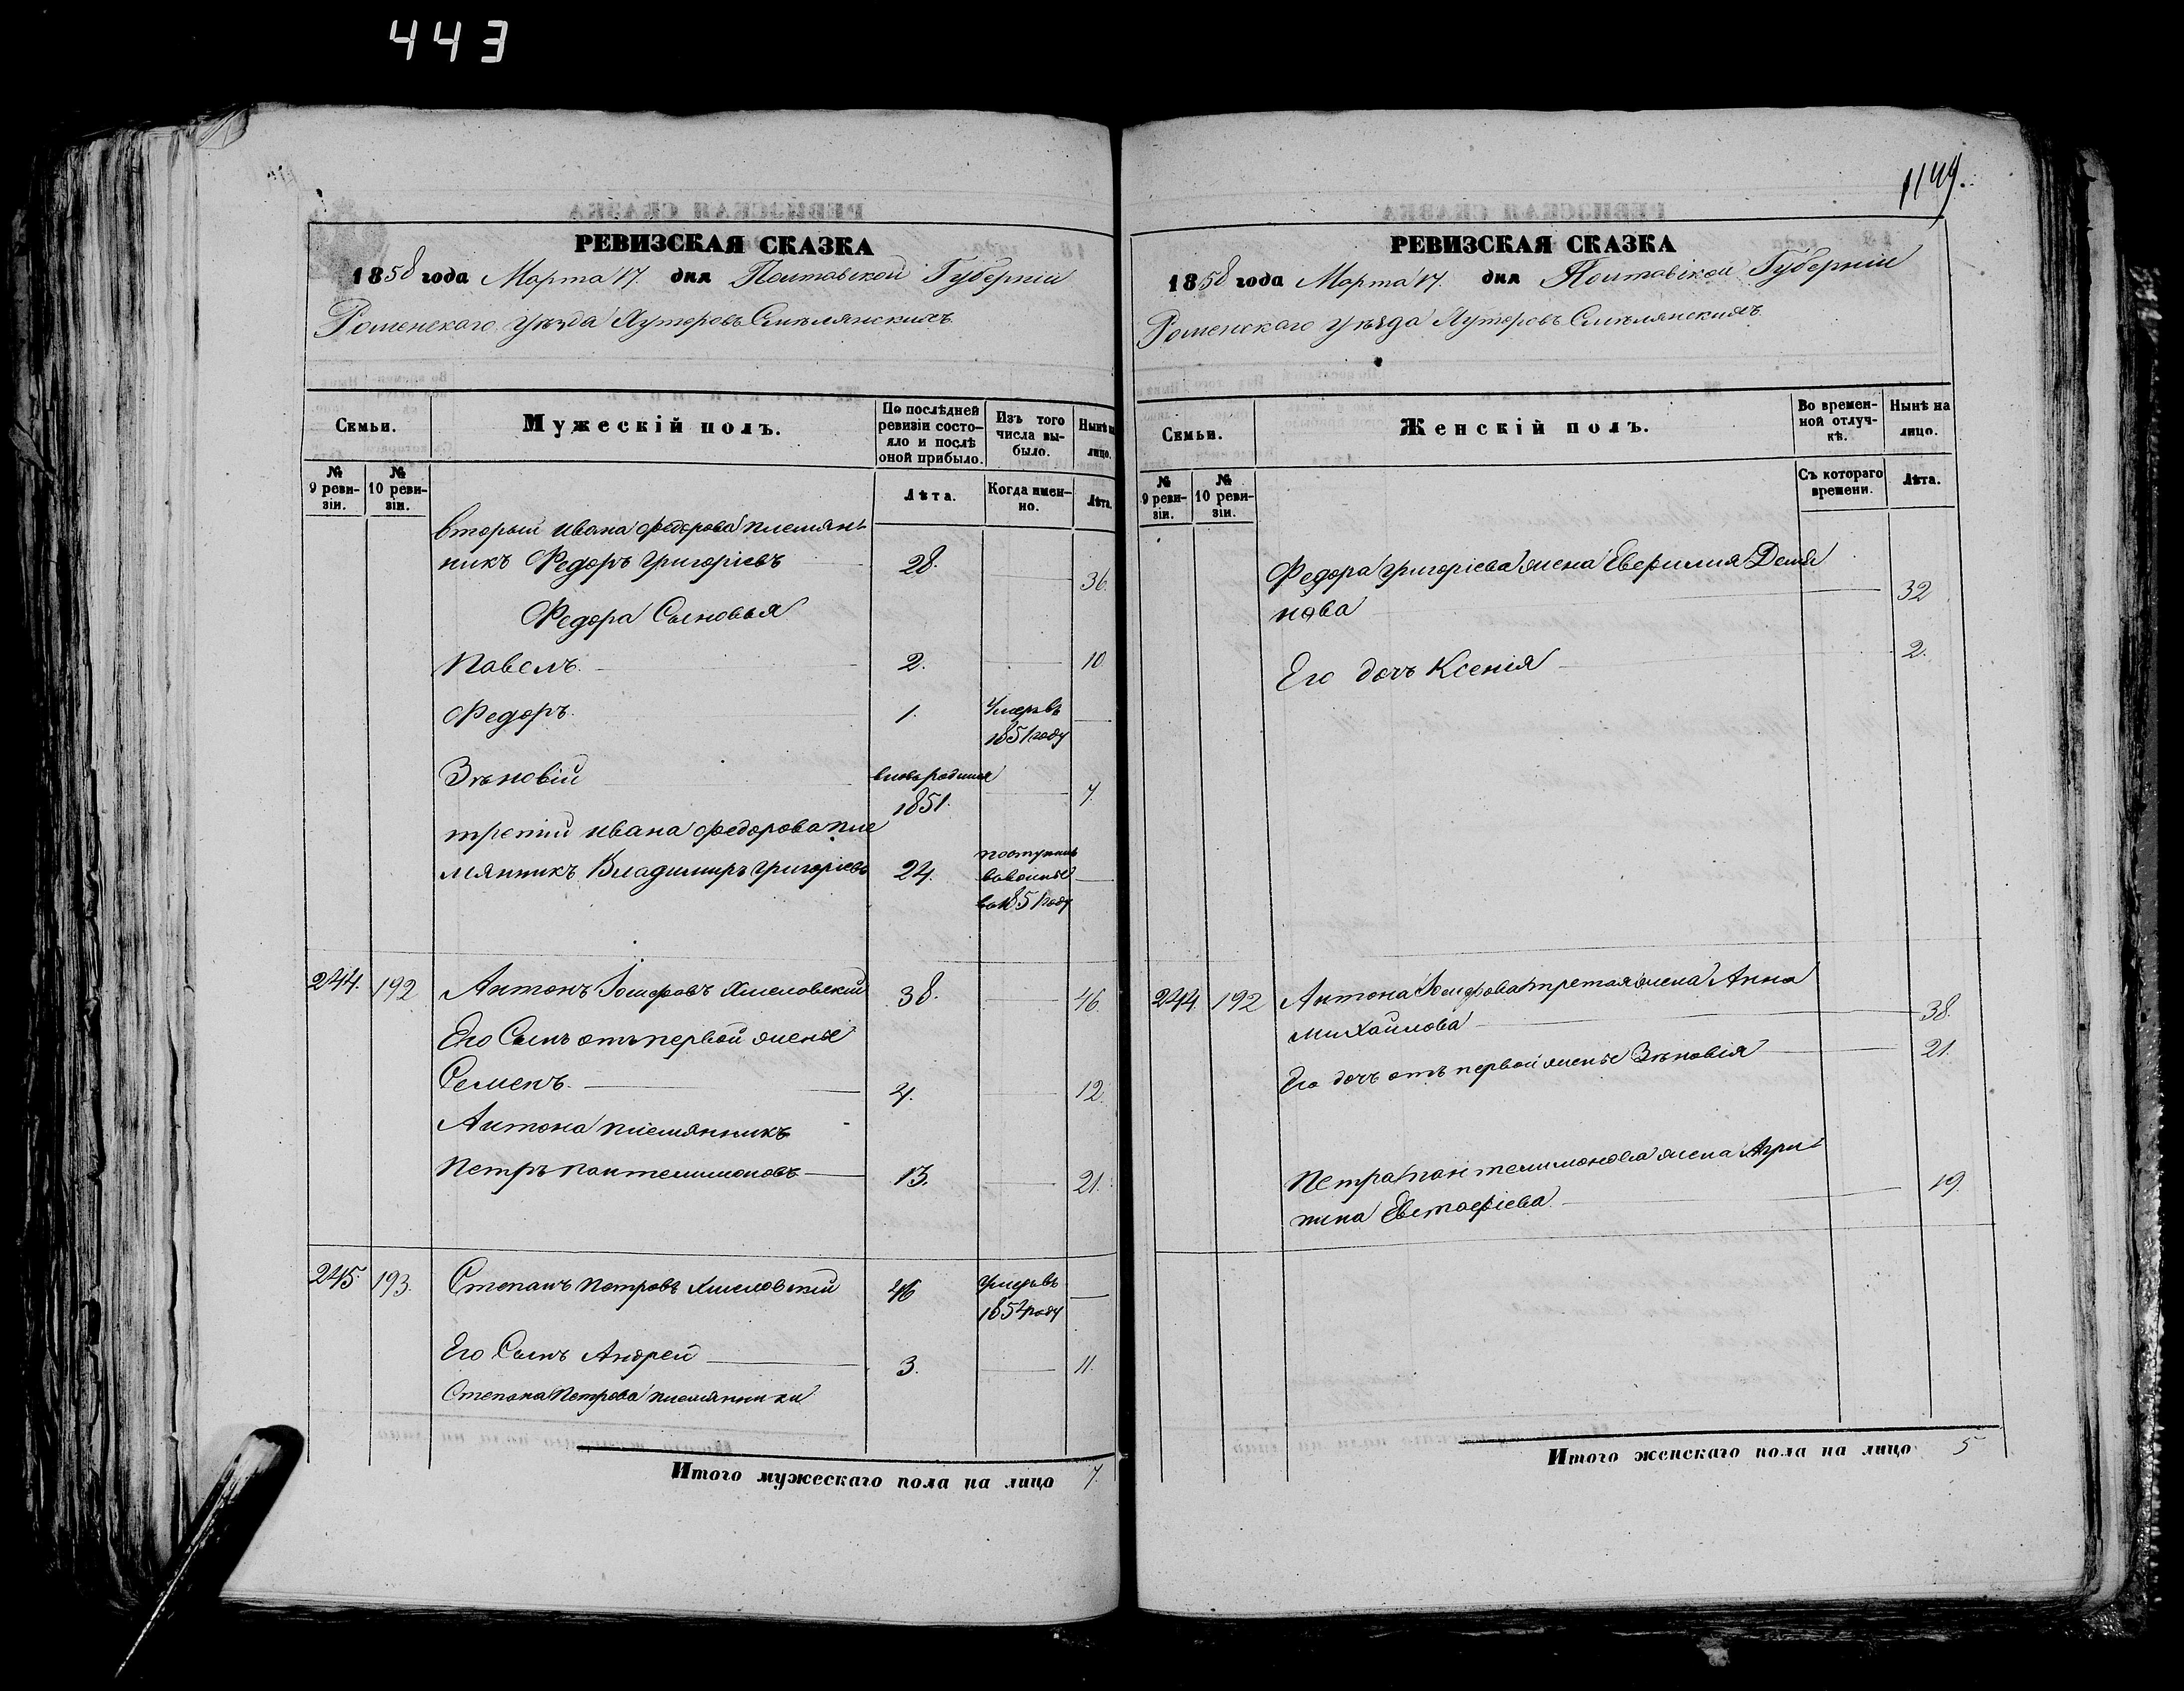 443
1149.
РЕВИЗСКАЯ СКАЗКА
1858 года Марта 17. дня Полтавской Губерніи
Роменскаго уѣзда Хуторовъ Смѣлянскихъ
Семьи.
Мужескій полъ.
По послѣдней ревизіи состояло и послѣ оной прибыло.
Изъ того числа выбыло.
Нынѣ на лицо.
№ 9 ревизіи.
№ 10 ревизіи.
Лѣта.
Когда именно.
Лѣта.
вторый Ивана Федорова племян-
никъ Федоръ Григоріевъ 28. 36.
Федора Сыновья
Павелъ 2. 10.
Федоръ 1. Умеръ въ 1851 году
Зѣновій вновь родился 1851. 7.
третій Ивана Федорова пле
мянникъ Владимиръ Григоріевъ 24. поступилъ 1851 году
244. 192 Антонъ Іосифовъ Хмеловскій 38. 46.
Его Сынъ отъ первой жены
Семенъ 4. 12.
Антона племянникъ
Петръ Пантелимоновъ 13. 21.
245. 193. Степанъ Петровъ Хмеловскій 46 Умеръ въ 1854 году
Его Сынъ Андрей 3. 11.
Степана Петрова племянники
Итого мужескаго пола на лицо 7.
РЕВИЗСКАЯ СКАЗКА
1858 года Марта 17. дня Полтавской Губерніи
Роменскаго уѣзда Хуторовъ Смѣлянскихъ
Семьи.
Женскій полъ.
Во временной отлучкѣ.
Нынѣ на лицо.
№ 9 ревизіи.
№ 10 ревизіи.
Съ котораго времени.
Лѣта.
Федора Григоріева жена Евфимия Демя
нова 32
Его дочь Ксенія 2.
244. 192 Антона Іосифова третая жена Анна
Михайлова 38.
Его дочь отъ первой жены Зѣновія 21.
Петра Пантелимонова жена Агри-
пина Евстафіева 19.
Итого женскаго пола на лицо 5